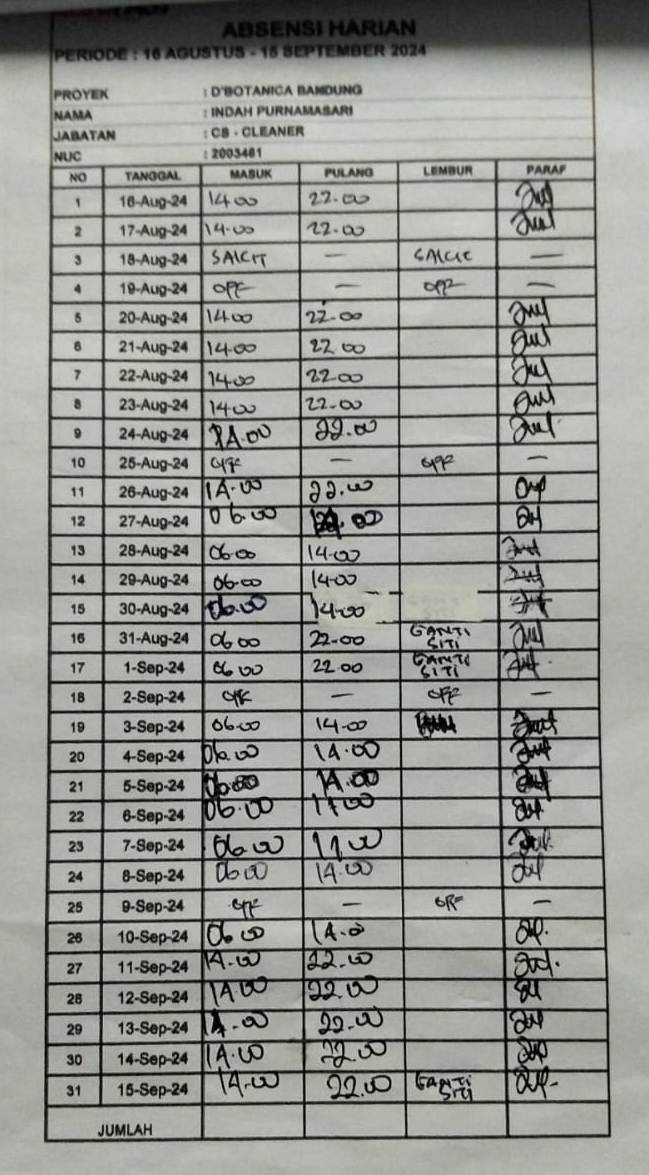 ABSENSI HARIAN
PERIODE : 16 AGUSTUS - 15 SEPTEMBER 2024
PROYEK : D'BOTANICA BANDUNG
NAMA : INDAH PURNAMASARI
JABATAN : CS - CLEANER
NUC : 2003461
NO TANGGAL MASUK PULANG LEMBUR PARAF
1 16-Aug-24 14.00 22.00
2 17-Aug-24 14.00 22.00
3 18-Aug-24 SAKIT — SAKIT —
4 19-Aug-24 OFF — OFF —
5 20-Aug-24 14.00 22.00
6 21-Aug-24 14.00 22.00
7 22-Aug-24 14.00 22.00
8 23-Aug-24 14.00 22.00
9 24-Aug-24 14.00 22.00
10 25-Aug-24 OFF — OFF —
11 26-Aug-24 14.00 22.00
12 27-Aug-24 06.00
13 28-Aug-24 06.00 14.00
14 29-Aug-24 06.00 14.00
15 30-Aug-24 06.00 14.00
16 31-Aug-24 06.00 22.00 GANTI SITI
17 1-Sep-24 06.00 22.00 GANTI SITI
18 2-Sep-24 OFF — OFF —
19 3-Sep-24 06.00 14.00
20 4-Sep-24 06.00 14.00
21 5-Sep-24 06.00 14.00
22 6-Sep-24 06.00
23 7-Sep-24 06.00
24 8-Sep-24 06.00 14.00
25 9-Sep-24 OFF — OFF —
26 10-Sep-24 06.00 14.00
27 11-Sep-24 14.00 22.00
28 12-Sep-24 14.00 22.00
29 13-Sep-24 14.00 22.00
30 14-Sep-24 14.00 22.00
31 15-Sep-24 14.00 22.00 GANTI SITI
JUMLAH